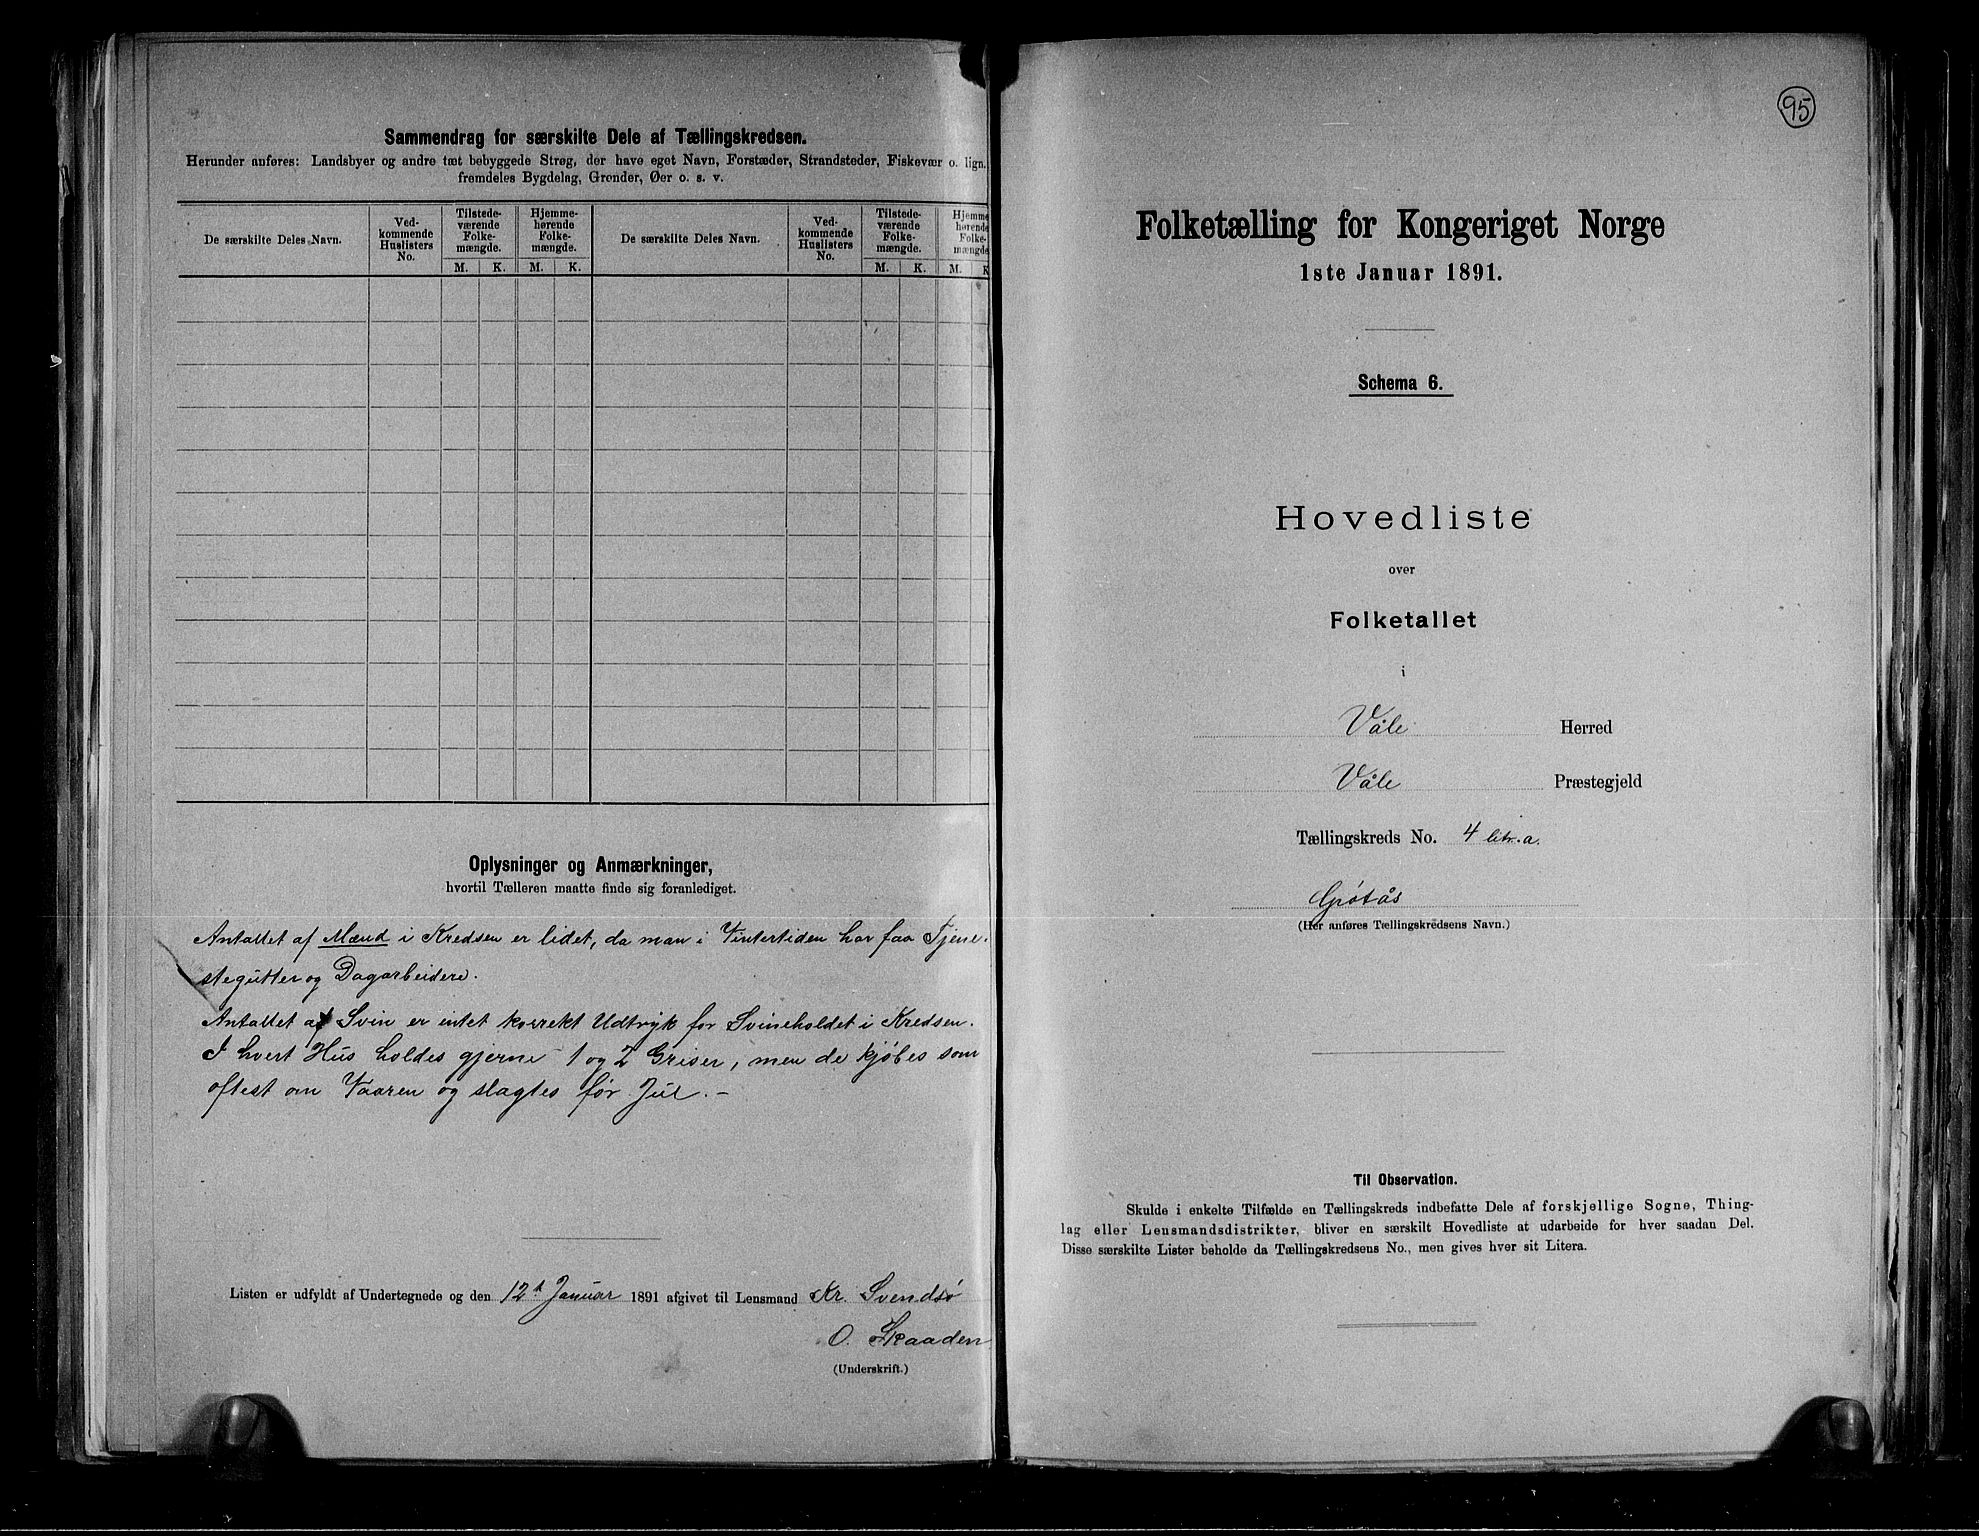 Sammendrag for særskilte Dele af Tællingskredsen.
Herunder anføres: Landsbyer og andre tæt bebyggede Strøg, der have eget Navn, Forstæder, Strandsteder, Fiskevær o. lign.
fremdeles Bygdelag, Grender, Øer o. s. v.
De særskilte Deles Navn.
Ved-
kommende
Huslisters
No.
Tilstede-
værende
Folke-
mængde.
M. K.
Hjemme-
hørende
Folke-
mængde.
M. K.
De særskilte Deles Navn.
Ved-
kommende
Huslisters
No.
Tilstede-
værende
Folke-
mængde.
M. K.
Hjemme-
hørende
Folke-
mængde
M. K
Oplysninger og Anmærkninger,
hvortil Tælleren maatte finde sig foranlediget.
Antallet af Mænd i Kredsen er lidet, da man i Vintertiden har faa Tjene-
stegutter og Dagarbeidere.
Antallet af Svin er intet korrekt Udtryk for Svineholdet i Kredsen.
I hvert Hus holdes gjerne 1 og 2 Griser, men de kjøbes som
oftest om Vaaren og slagtes før Jul. –
Listen er udfyldt af Undertegnede og den 12te Januar 1891 afgivet til Lensmand Kr. Svendsø
O. Skaaden
(Underskrift.)
95
Folketælling for Kongeriget Norge
1ste Januar 1891.
Schema 6.
Hovedliste
over
Folketallet
i
Våle Herred
Våle Præstegjeld
Tællingskreds No. 4 litr. a.
Grøtås
(Her anføres Tællingskredsens Navn.)
Til Observation.
Skulde i enkelte Tilfælde en Tællingskreds indbefatte Dele af forskjellige Sogne, Thing-
lag eller Lensmandsdistrikter, bliver en særskilt Hovedliste at udarbeide for hver saadan Del.
Disse særskilte Lister beholde da Tællingskredsens No., men gives hver sit Litera.